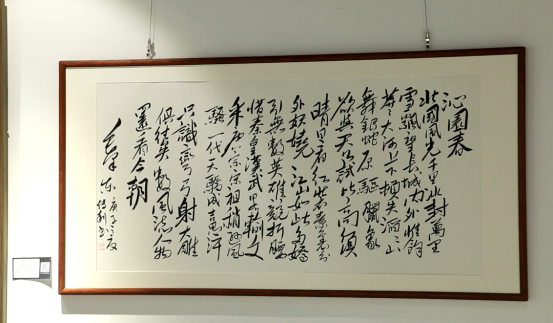 沁園春
北國風光千里冰封萬里
雪飄望長城内外惟餘
莽〻大河上下頓失滔〻山
舞銀蛇原驅臘象
欲與天公試比高須
晴日看紅裝素裹分
外妖嬈江山如此多嬌
引無數英雄競折腰
惜秦皇漢武略輸文
采唐宗宋祖稍遜風
騷一代天驕成吉思汗
只識彎弓射大雕
俱往矣數風流人物
還看今朝
庚子